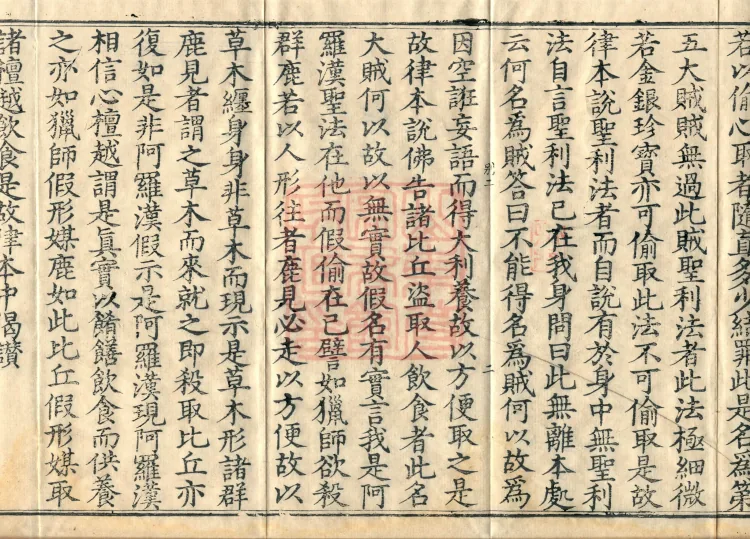 若以偷心取者隨直多少結罪此是名爲第
五大賊賊無過此賊聖利法者此法極細微
若金銀珍寶亦可偷取此法不可偷取是故
律本說聖利法者而自說有於身中無聖利
法自言聖利法已在我身問曰此無離本處
云何名爲賊荅曰不能得名爲賊何以故爲
二
因空誑妄語而得大利養故以方便取之是
故律本說佛告諸比丘盜取人飲食者此名
大賊何以故以無實故假名有實言我是阿
羅漢聖法在他而假偷在己譬如獵師欲殺
群鹿若以人形往者鹿見必走以方便故以
草木纏身身非草木而現示是草木形諸群
鹿見者謂之草木而來就之即殺取比丘亦
復如是非阿羅漢假示是阿羅漢現阿羅漢
相信心檀越謂是眞實以餚饍飲食而供養
之亦如獵師假形媒鹿如此比丘假形媒取
諸檀越飲食是故律本中偈讃